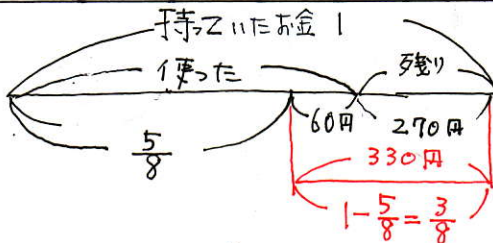 持っていたお金 1
使った
残り
60円
270円
5/8
330円
1-5/8=3/8